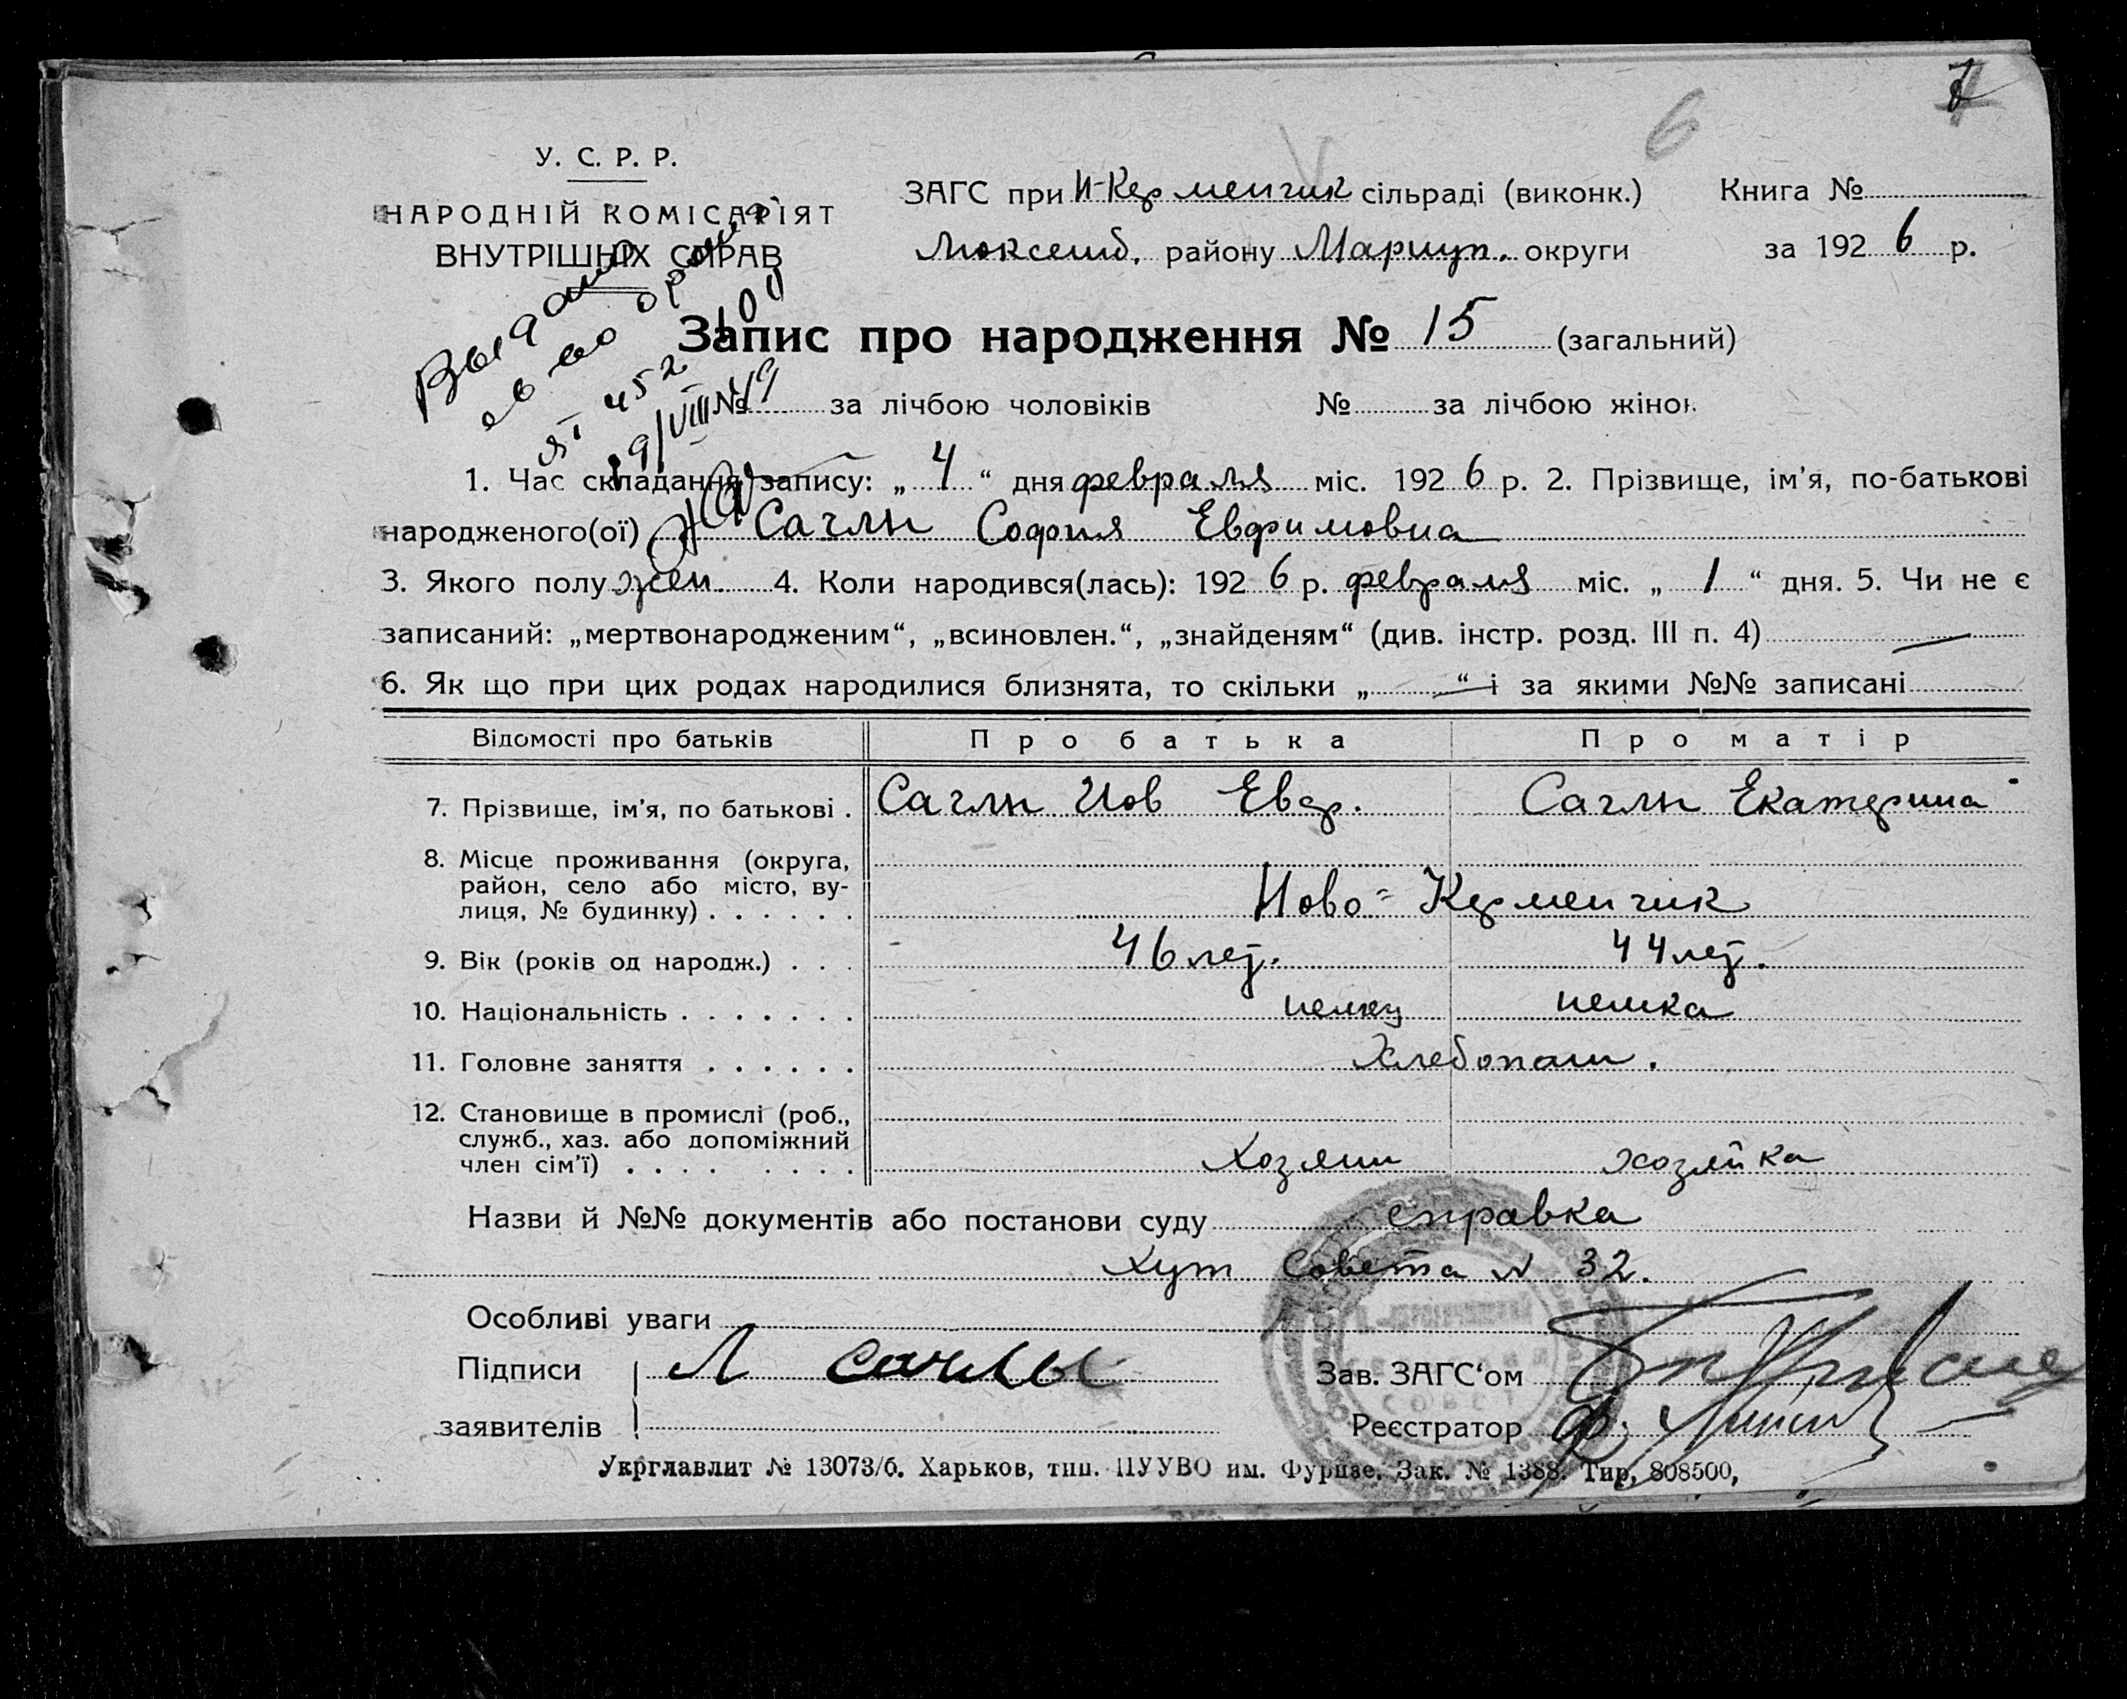 6
У. С. Р. Р.
НАРОДНІЙ КОМІСАРІЯТ
ВНУТРІШНІХ СПРАВ
ЗАГС при Н-Керменчик сільраді (виконк.) Книга №
Люксемб. району Мариуп. округи за 1926 р.
Выдано
19/VIII 49
Запис про народження № 15 (загальний)
№ за лічбою чоловіків № за лічбою жінок
1. Час складання запису: „ 4 “ дня февраля міс. 1926 р. 2. Прізвище, ім’я, по-батькові
народженого(ої) Саглы София Евфимовна
3. Якого полу жен. 4. Коли народився(лась): 1926 р. февраля міс. „ 1 “ дня. 5. Чи не є
записаний: „мертвонародженим“, „всиновлен.“, „знайденям“ (див. інстр. розд. III п. 4) —
6. Як що при цих родах народилися близнята, то скільки „ “ і за якими №№ записані
Відомості про батьків Про батька Про матір
7. Прізвище, ім’я, по батькові . Саглы Иов Евф. Саглы Екатерина
8. Місце проживання (округа,
район, село або місто, ву-
лиця, № будинку) . . . . . . Ново-Керменчик
9. Вік (років од народж.) . . . 46 лет. 44 лет.
10. Національність . . . . . . . немец немка
11. Головне заняття . . . . . . Хлебопаш.
12. Становище в промислі (роб.,
служб., хаз. або допоміжний
член сім’ї) . . . . . . . . Хозяин хозяйка
Назви й №№ документів або постанови суду справка
Хут Совета N 32.
Особливі уваги
Підписи Зав. ЗАГС‘ом
заявителів Реєстратор
Укрглавлит № 13073/б. Харьков, тип. ПУУВО им. Фрунзе. Зак. № 1388. Тир. 808500,